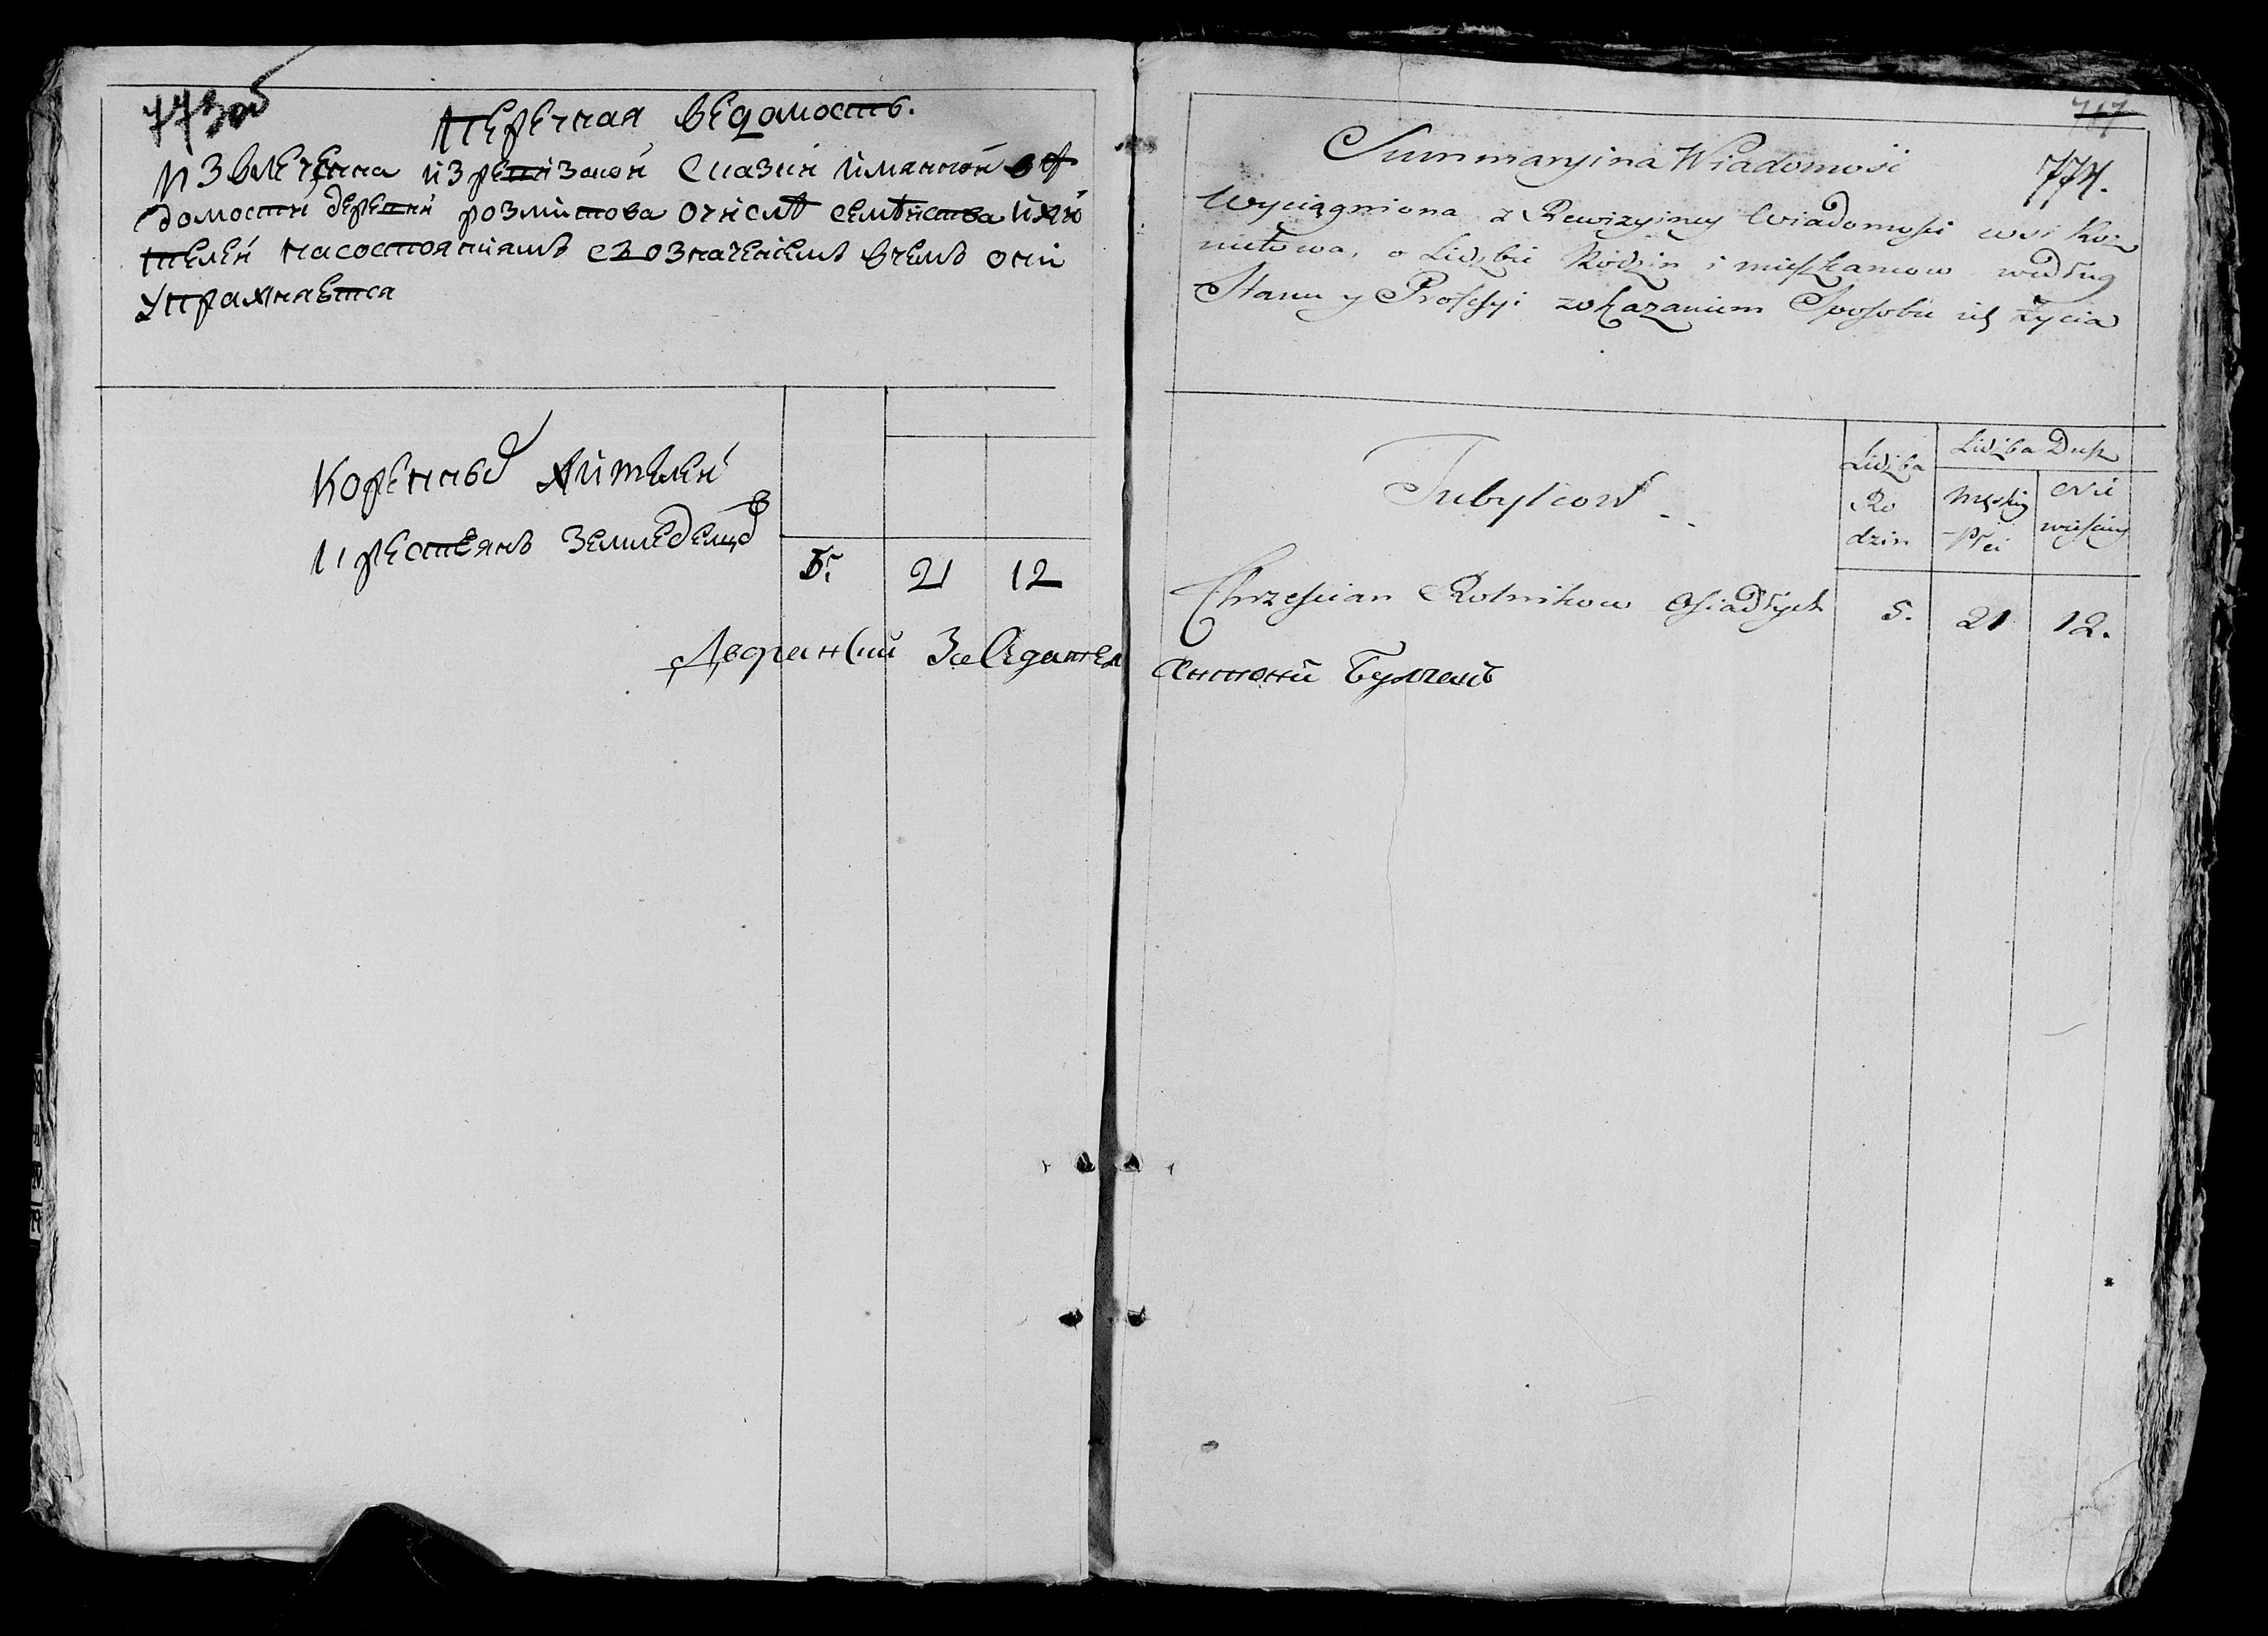 773об
Перечная ведомость.
Извлечена изревизской сказки имянной ве
домости деревни розмитова очисле семейства ижи
телей насостояниямъ созначениемъ вчемъ они
упражняется
Коренныхъ жителей
крестьянъ земледелцовъ 5. 21 12
Дворянский Заседатель Антоний
774.
Summaryina Wiadomość
Wyciągniona z Rewizyiney Wiadomości wsi Roz
mitowa, o Liczbie Rodzin i mieszkancow według
Stanu y Professyi zokazaniem Sposobu ich życia
Tubylcow
Liczba Rodzin
Liczba Dusz
Męskiey Płci
Niewieściey
Chrześcian Rolnikow Osiadłych 5. 21 12.